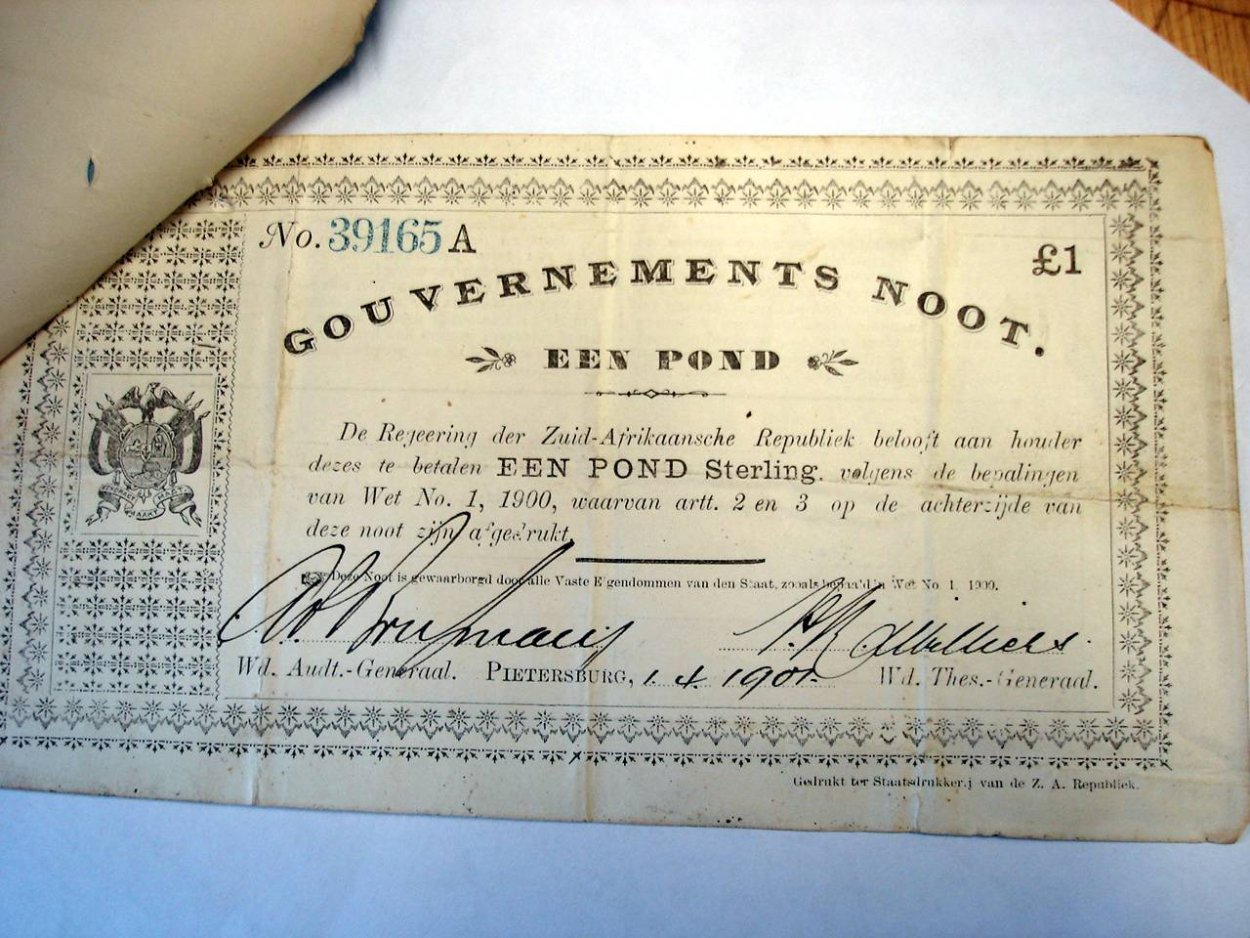 No. 39165 A
£1
GOUVERNEMENTS NOOT.
EEN POND
De Regeering der Zuid-Afrikaansche Republiek belooft aan houder
dezes te betalen EEN POND Sterling, volgens de bepalingen
van Wet No. 1, 1900, waarvan artt. 2 en 3 op de achterzijde van
deze noot zijn afgedrukt
Deze Noot is gewaarborgd door alle Vaste Eigendommen van den Staat, zooals bepaald in Wet No. 1, 1900.
Wd. Audt.-Generaal. PIETERSBURG, 1.4.1901. Wd. Thes.-Generaal.
Gedrukt ter Staatsdrukkerij van de Z. A. Republiek.